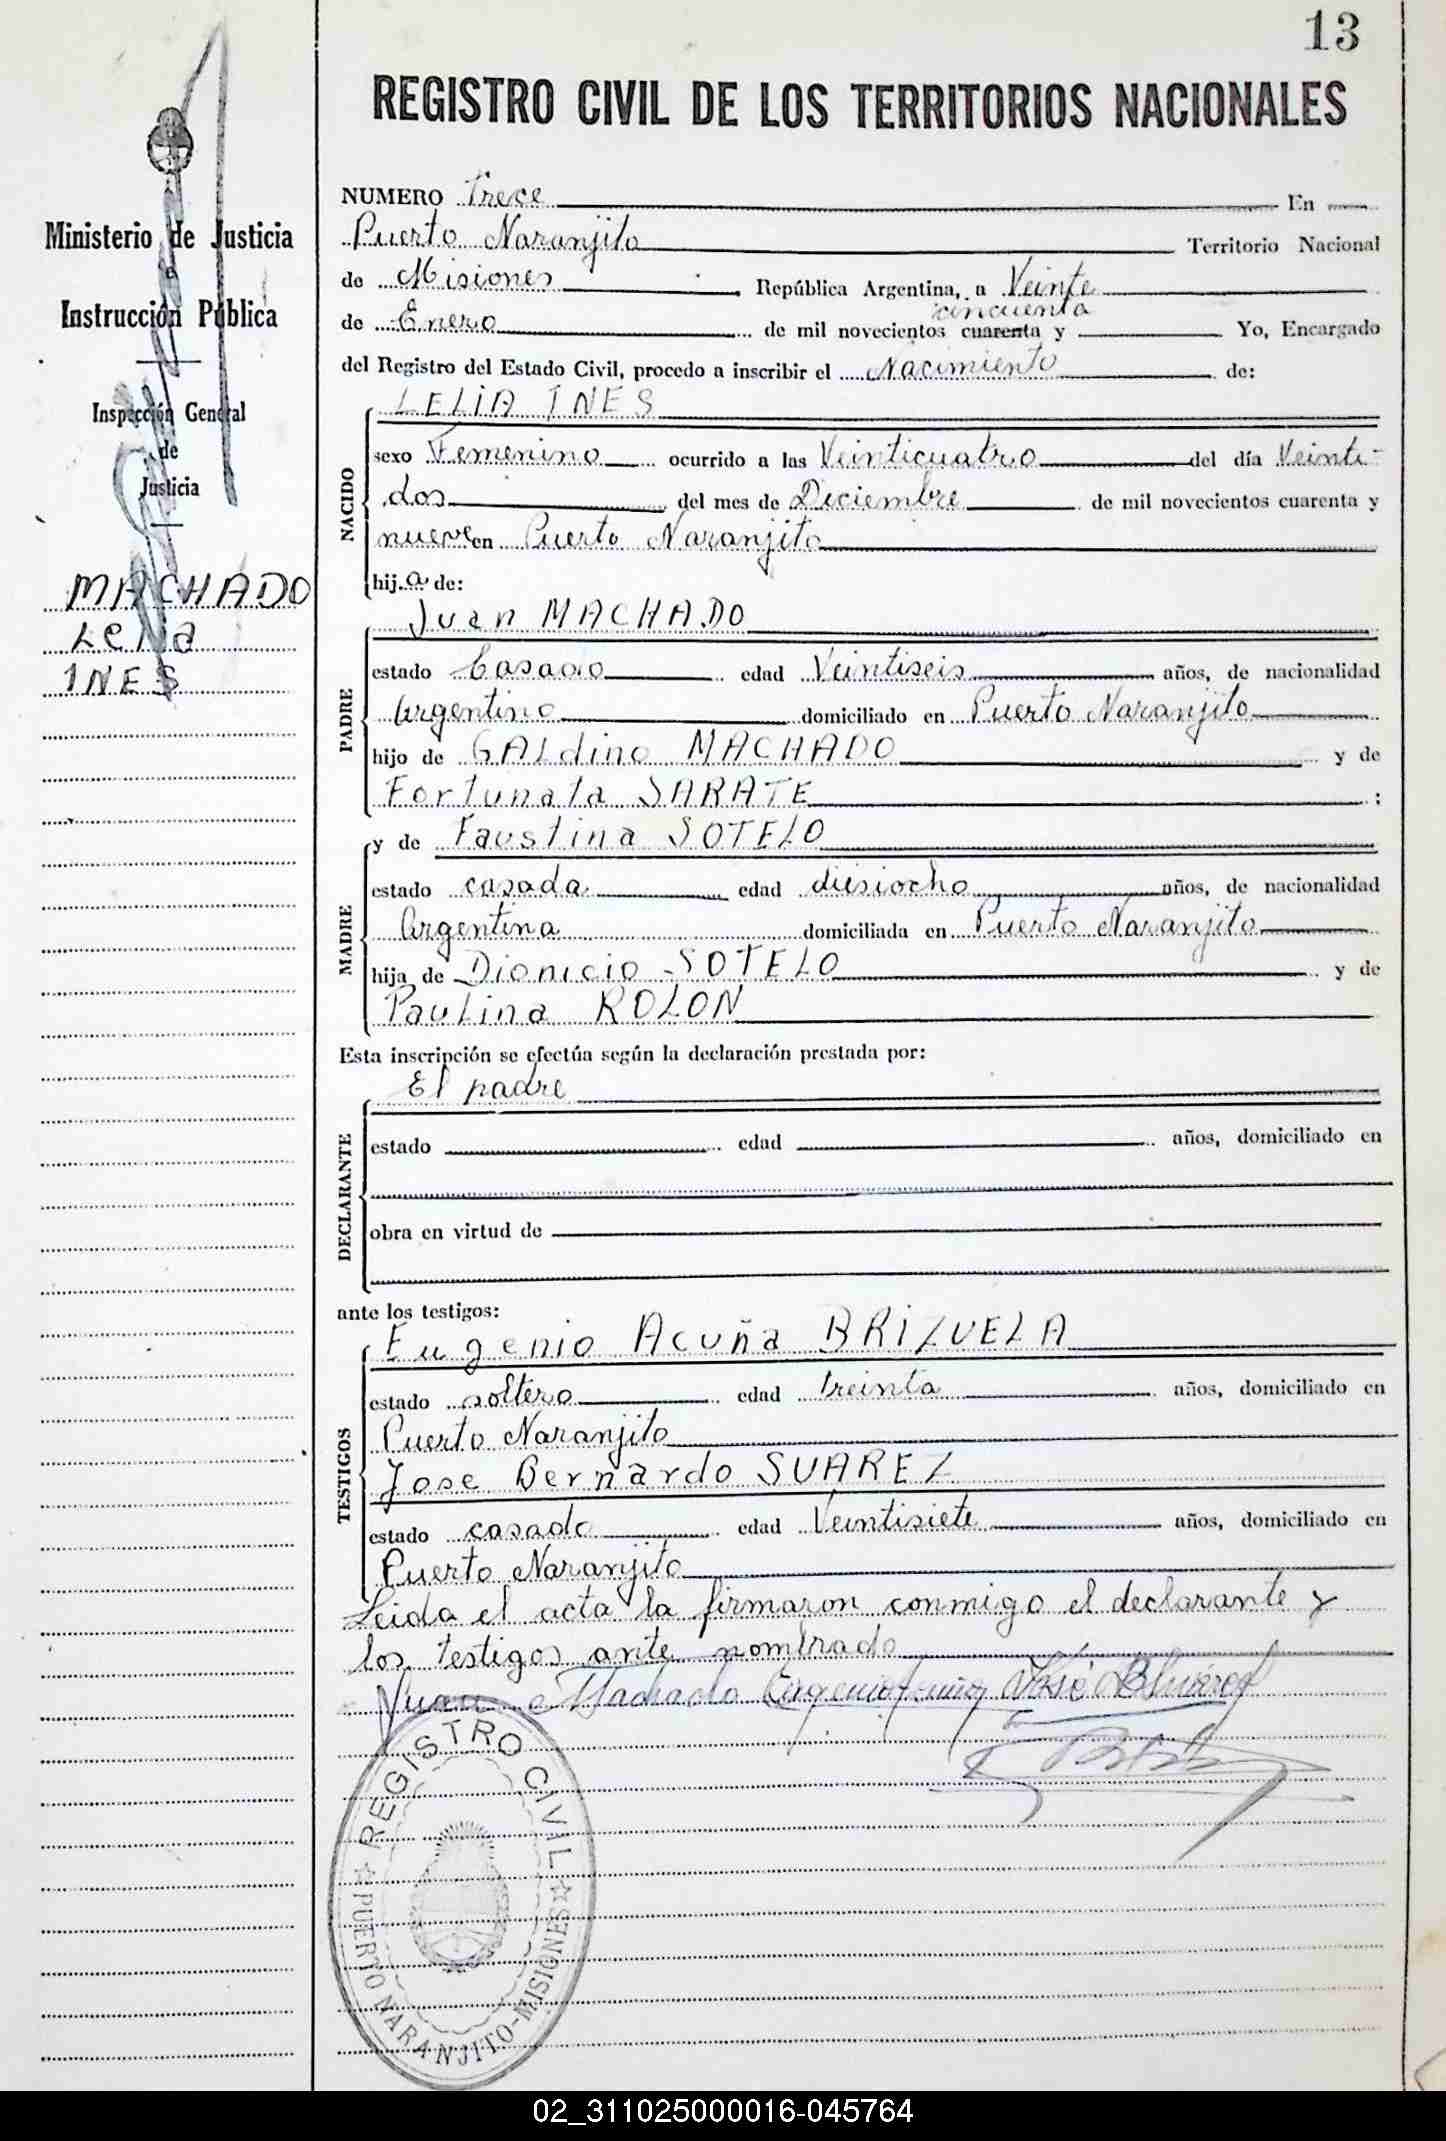 13
REGISTRO CIVIL DE LOS TERRITORIOS NACIONALES
Ministerio de Justicia
e
Instrucción Pública
Inspección General
de
Justicia
MACHADO
Lelia
INES
NUMERO Trece En
Puerto Naranjito Territorio Nacional
de Misiones República Argentina, a Veinte
cincuenta
de Enero de mil novecientos cuarenta y Yo, Encargado
del Registro del Estado Civil, procedo a inscribir el Nacimiento de:
NACIDO
LELIA INES
sexo Femenino ocurrido a las Veinticuatro del día Veinti-
dos del mes de Diciembre de mil novecientos cuarenta y
nueve en Puerto Naranjito
hij a de:
PADRE
Juan MACHADO
estado Casado edad Veintiseis años, de nacionalidad
Argentino domiciliado en Puerto Naranjito
hijo de GALdino MACHADO y de
Fortunata SARATE ;
MADRE
y de Faustina SOTELO
estado casada edad diesiocho años, de nacionalidad
Argentina domiciliada en Puerto Naranjito
hija de Dionicio SOTELO y de
Paulina ROLON
Esta inscripción se efectúa según la declaración prestada por:
El padre
DECLARANTE
estado edad años, domiciliado en
obra en virtud de
ante los testigos:
TESTIGOS
Eugenio Acuña BRIZUELA
estado soltero edad treinta años, domiciliado en
Puerto Naranjito
Jose Bernardo SUAREZ
estado casado edad Veintisiete años, domiciliado en
Puerto Naranjito
Leida el acta la firmaron conmigo el declarante y
los testigos ante nombrado
Juan Machado Eugenio Acuña José B Suárez
REGISTRO CIVIL
PUERTO NARANJITO-MISIONES
02_311025000016-045764